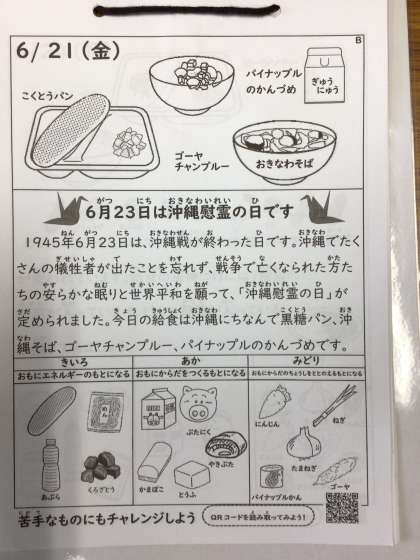 6/21(金)
B
パイナップル
のかんづめ
ぎゅう
にゅう
こくとうパン
ゴーヤ
チャンプルー
おきなわそば
6月23日は沖縄慰霊の日です
1945年6月23日は、沖縄戦が終わった日です。沖縄でたく
さんの犠牲者が出たことを忘れず、戦争で亡くなられた方た
ちの安らかな眠りと世界平和を願って、「沖縄慰霊の日」が
定められました。今日の給食は沖縄にちなんで黒糖パン、沖
縄そば、ゴーヤチャンプルー、パイナップルのかんづめです。
きいろ
あか
みどり
おもにエネルギーのもとになる
おもにからだをつくるもとになる
おもにからだのちょうしをととのえるもとになる
めん
あぶら
くろざとう
ぶたにく
やきぶた
かまぼこ
とうふ
にんじん
ねぎ
たまねぎ
パイナップルかん
ゴーヤ
苦手なものにもチャレンジしよう
QRコードを読み取ってみよう!